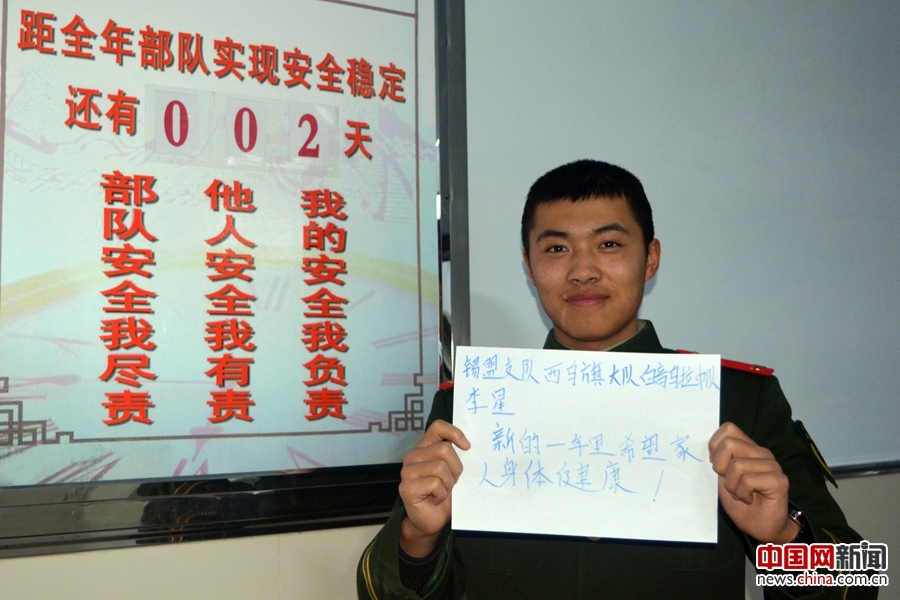 距全年部队实现安全稳定
还有 002 天
我的安全我负责
他人安全我有责
部队安全我尽责
锡盟支队西乌旗大队白音乌拉中队
李星
新的一年里希望家
人身体健康！
中国网新闻
news.china.com.cn